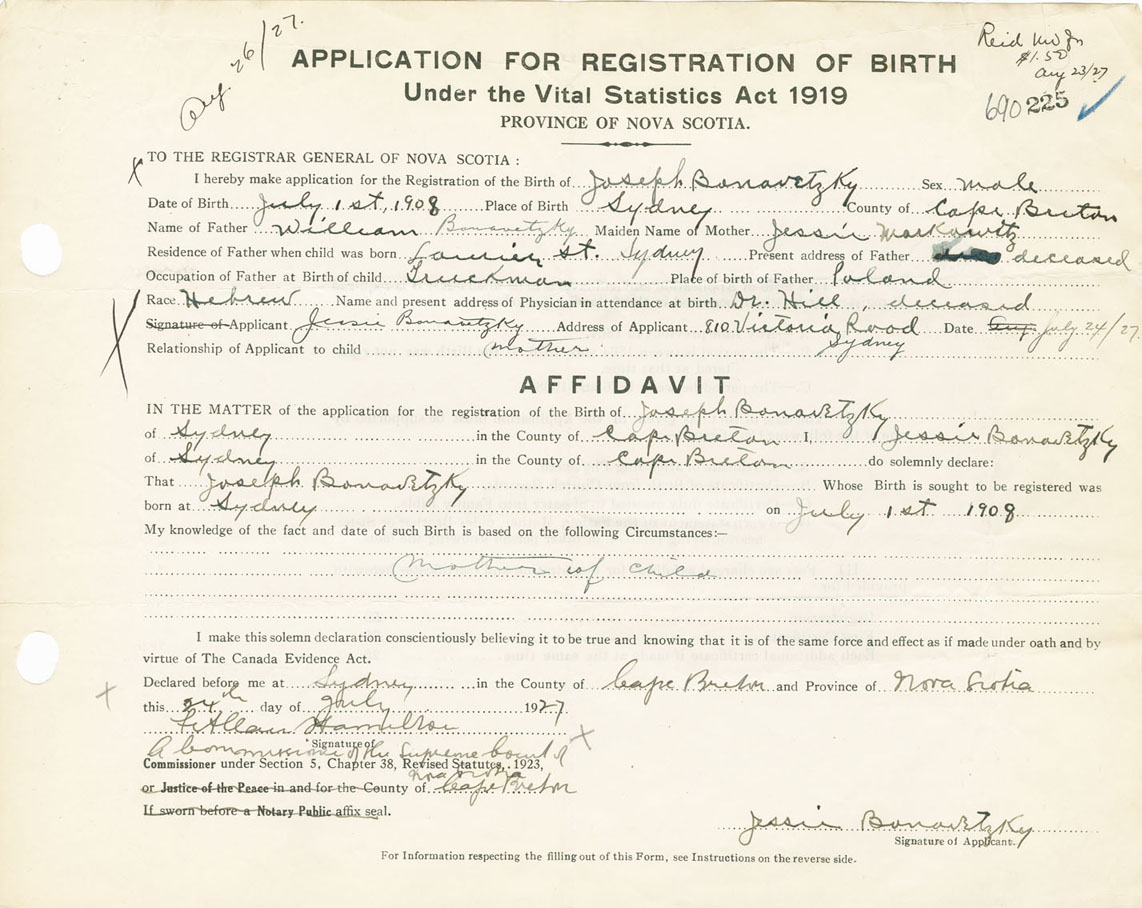 Aug. 26/27.
Reid
$1.50
Aug 23/27
690 225
APPLICATION FOR REGISTRATION OF BIRTH
Under the Vital Statistics Act 1919
PROVINCE OF NOVA SCOTIA.
TO THE REGISTRAR GENERAL OF NOVA SCOTIA :
I hereby make application for the Registration of the Birth of Joseph Bonavetzky Sex male
Date of Birth July 1st, 1908 Place of Birth Sydney County of Cape Breton
Name of Father William Bonavetzky Maiden Name of Mother Jessie Markowitz
Residence of Father when child was born Laurier St. Sydney Present address of Father deceased
Occupation of Father at Birth of child Truckman Place of birth of Father Poland
Race Hebrew Name and present address of Physician in attendance at birth Dr. Hill, deceased
Signature of Applicant Jessie Bonavetzky Address of Applicant 810 Victoria Road Date Aug. July 24/27.
Relationship of Applicant to child mother Sydney
AFFIDAVIT
IN THE MATTER of the application for the registration of the Birth of Joseph Bonavetzky
of Sydney in the County of Cape Breton I, Jessie Bonavetzky
of Sydney in the County of Cape Breton do solemnly declare:
That Joseph Bonavetzky Whose Birth is sought to be registered was
born at Sydney on July 1st 1908
My knowledge of the fact and date of such Birth is based on the following Circumstances:—
Mother of child
I make this solemn declaration conscientiously believing it to be true and knowing that it is of the same force and effect as if made under oath and by
virtue of The Canada Evidence Act.
Declared before me at Sydney in the County of Cape Breton and Province of Nova Scotia
this 24th day of July 1927.
Hamilton
Signature of
A Commissioner of the Supreme Court of
Commissioner under Section 5, Chapter 38, Revised Statutes, 1923,
Nova Scotia
or Justice of the Peace in and for the County of Cape Breton
If sworn before a Notary Public affix seal.
Jessie Bonavetzky
Signature of Applicant.
For Information respecting the filling out of this Form, see Instructions on the reverse side.